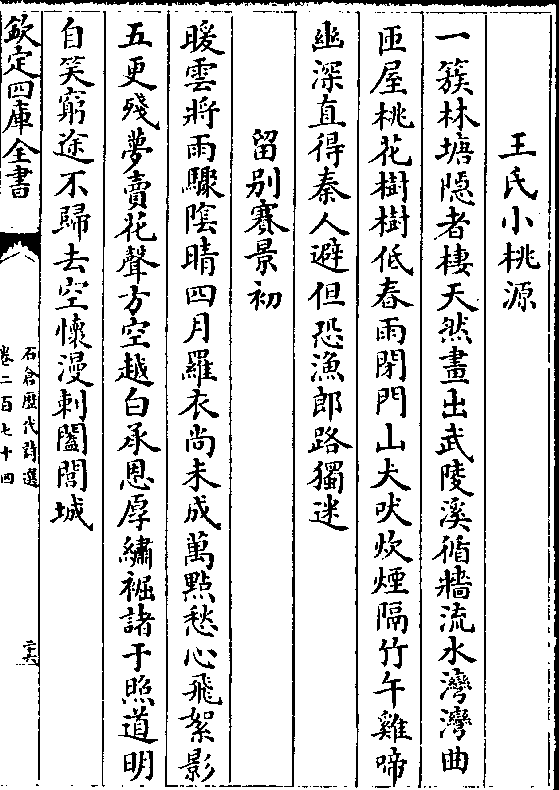 王氏小桃源
一簇林塘隐者棲天然畫出武陵溪循牆流水灣灣曲
匝屋桃花樹樹低春雨閉門山犬吠炊煙隔竹午雞啼
幽深直得秦人避但恐漁郎路獨迷
留别賽景初
暖雲將雨驟陰晴四月羅衣尚未成萬點愁心飛絮影
五更殘夢賣花聲方空越白承恩厚繡裾諸于照道明
自笑窮途不歸去空懷漫刺闔閭城
欽定四庫全書
石倉歷代詩選
卷二百七十四
二十六